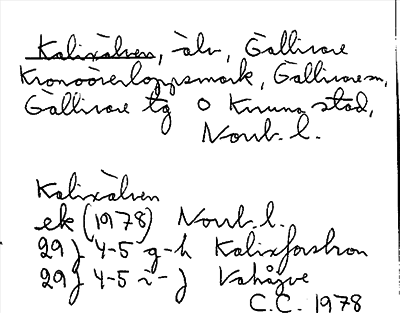 Kalixälven, älv, Gällivare
Kronoöverloppsmark, Gällivare sn,
Gällivare tg o Kiruna stad,
Norrb. l.
Kalixälven
ek (1978) Norrb. l.
29J 4-5 g-h Kalixforsbron
29J 4-5 i-j
C.C. 1978